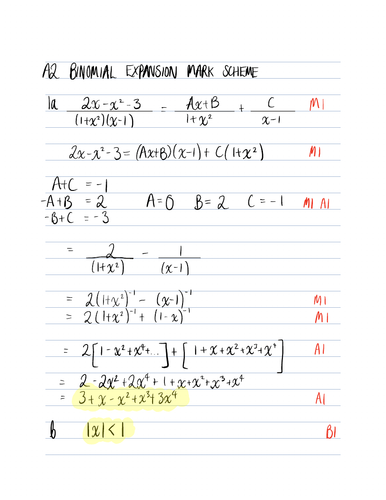 A2 BINOMIAL EXPANSION MARK SCHEME
1a (2x-x²-3)/((1+x²)(x-1)) = (Ax+B)/(1+x²) + C/(x-1) M1
2x-x²-3 = (Ax+B)(x-1) + C(1+x²) M1
A+C = -1
-A+B = 2 A=0 B=2 C=-1 M1 A1
-B+C = -3
= 2/(1+x²) - 1/(x-1)
= 2(1+x²)⁻¹ - (x-1)⁻¹ M1
= 2(1+x²)⁻¹ + (1-x)⁻¹ M1
= 2[1-x²+x⁴...] + [1+x+x²+x³+x⁴] A1
= 2-2x²+2x⁴+1+x+x²+x³+x⁴
= 3+x-x²+x³+3x⁴ A1
b |x|<1 B1